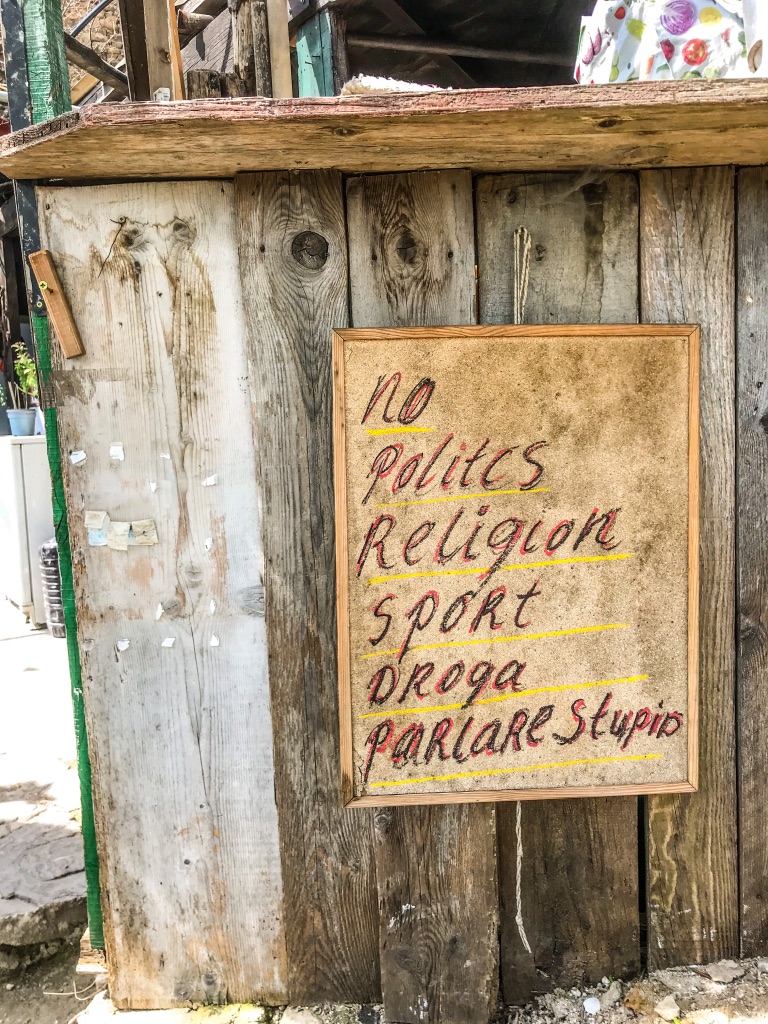 NO
Politcs
Religion
Sport
Droga
Parlare Stupid